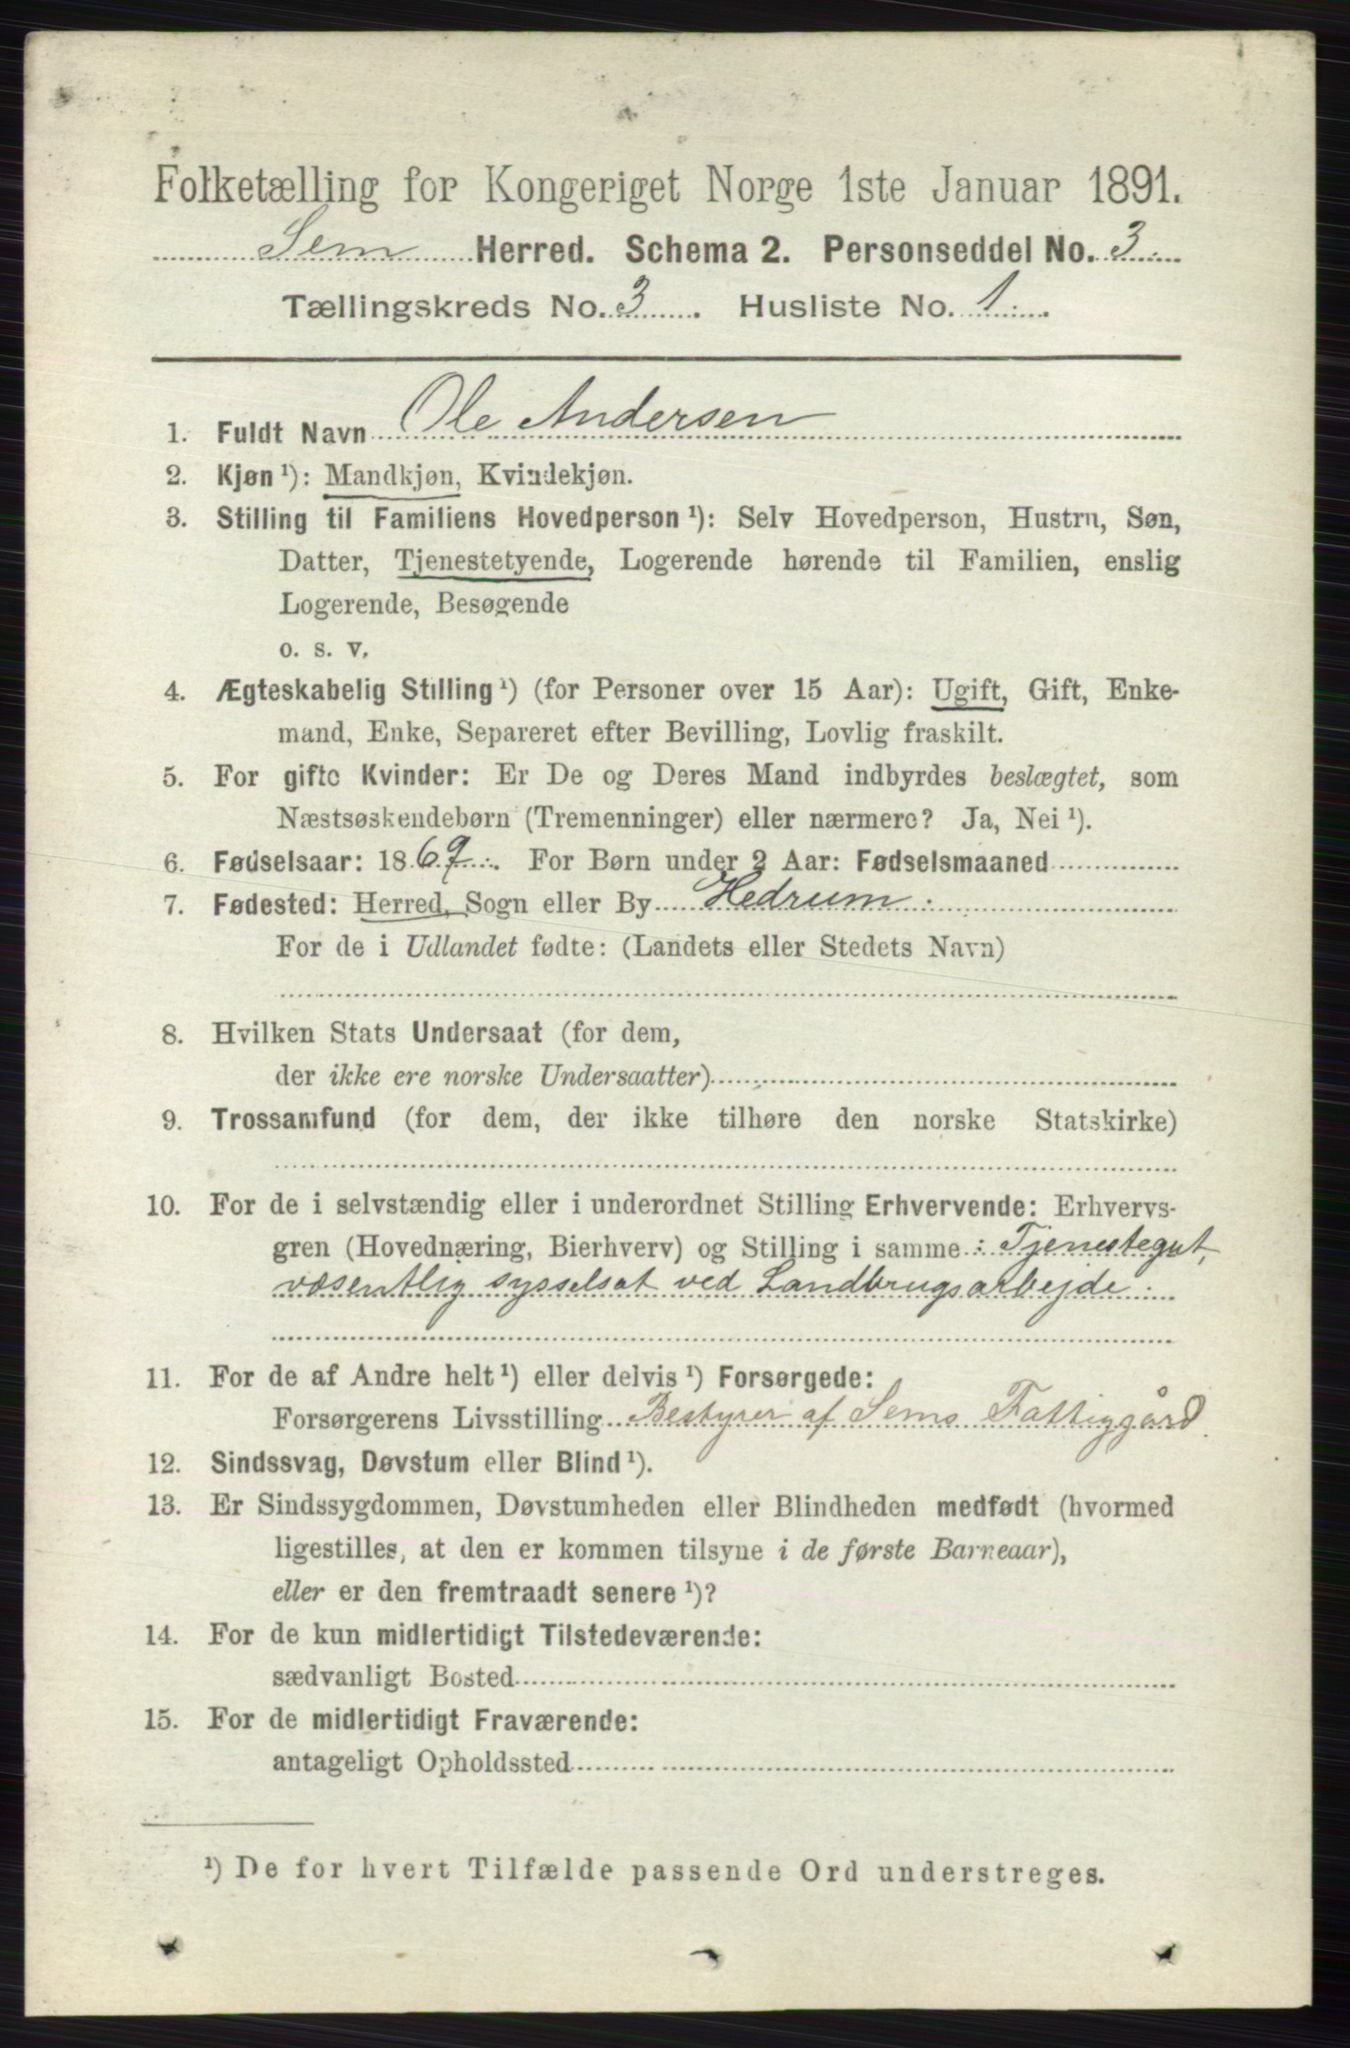 Folketælling for Kongeriget Norge 1ste Januar 1891.
Sem Herred. Schema 2. Personseddel No. 3
Tællingskreds No. 3. Husliste No. 1.
1. Fuldt Navn Ole Andersen
2. Kjøn ¹): Mandkjøn, Kvindekjøn.
3. Stilling til Familiens Hovedperson ¹): Selv Hovedperson, Hustru, Søn,
Datter, Tjenestetyende, Logerende hørende til Familien, enslig
Logerende, Besøgende
o. s. v.
4. Ægteskabelig Stilling ¹) (for Personer over 15 Aar): Ugift, Gift, Enke-
mand, Enke, Separeret efter Bevilling, Lovlig fraskilt.
5. For gifte Kvinder: Er De og Deres Mand indbyrdes beslægtet, som
Næstsøskendebørn (Tremenninger) eller nærmere? Ja, Nei ¹).
6. Fødselsaar: 1869. For Børn under 2 Aar: Fødselsmaaned
7. Fødested: Herred, Sogn eller By Hedrum
For de i Udlandet fødte: (Landets eller Stedets Navn)
8. Hvilken Stats Undersaat (for dem,
der ikke ere norske Undersaatter)
9. Trossamfund (for dem, der ikke tilhøre den norske Statskirke)
10. For de i selvstændig eller i underordnet Stilling Erhvervende: Erhvervs-
gren (Hovednæring, Bierhverv) og Stilling i samme: Tjenestegut,
væsentlig sysselsat ved Landbrugsarbejde.
11. For de af Andre helt ¹) eller delvis ¹) Forsørgede:
Forsørgerens Livsstilling Bestyrer af Sems Fattiggård
12. Sindssvag, Døvstum eller Blind ¹).
13. Er Sindssygdommen, Døvstumheden eller Blindheden medfødt (hvormed
ligestilles, at den er kommen tilsyne i de første Barneaar),
eller er den fremtraadt senere ¹)?
14. For de kun midlertidigt Tilstedeværende:
sædvanligt Bosted
15. For de midlertidigt Fraværende:
antageligt Opholdssted
¹) De for hvert Tilfælde passende Ord understreges.